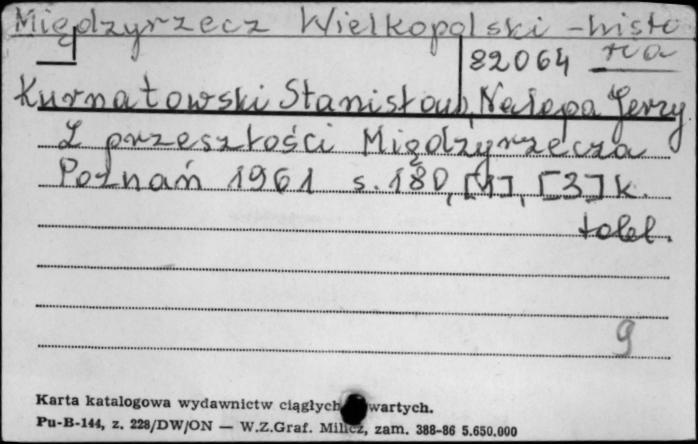 Międzyrzecz Wielkopolski - histo
ria
82064
Kurnatowski Stanisław, Nalepa Jerzy
Z przeszłości Międzyrzecza
Poznań 1961 s. 180, [1], [3] k.
tabl.
9
Karta katalogowa wydawnictw ciągłych wartych.
Pu-B-144, z. 228/DW/ON — W.Z.Graf. Milicz, zam. 388-86 5.650.000